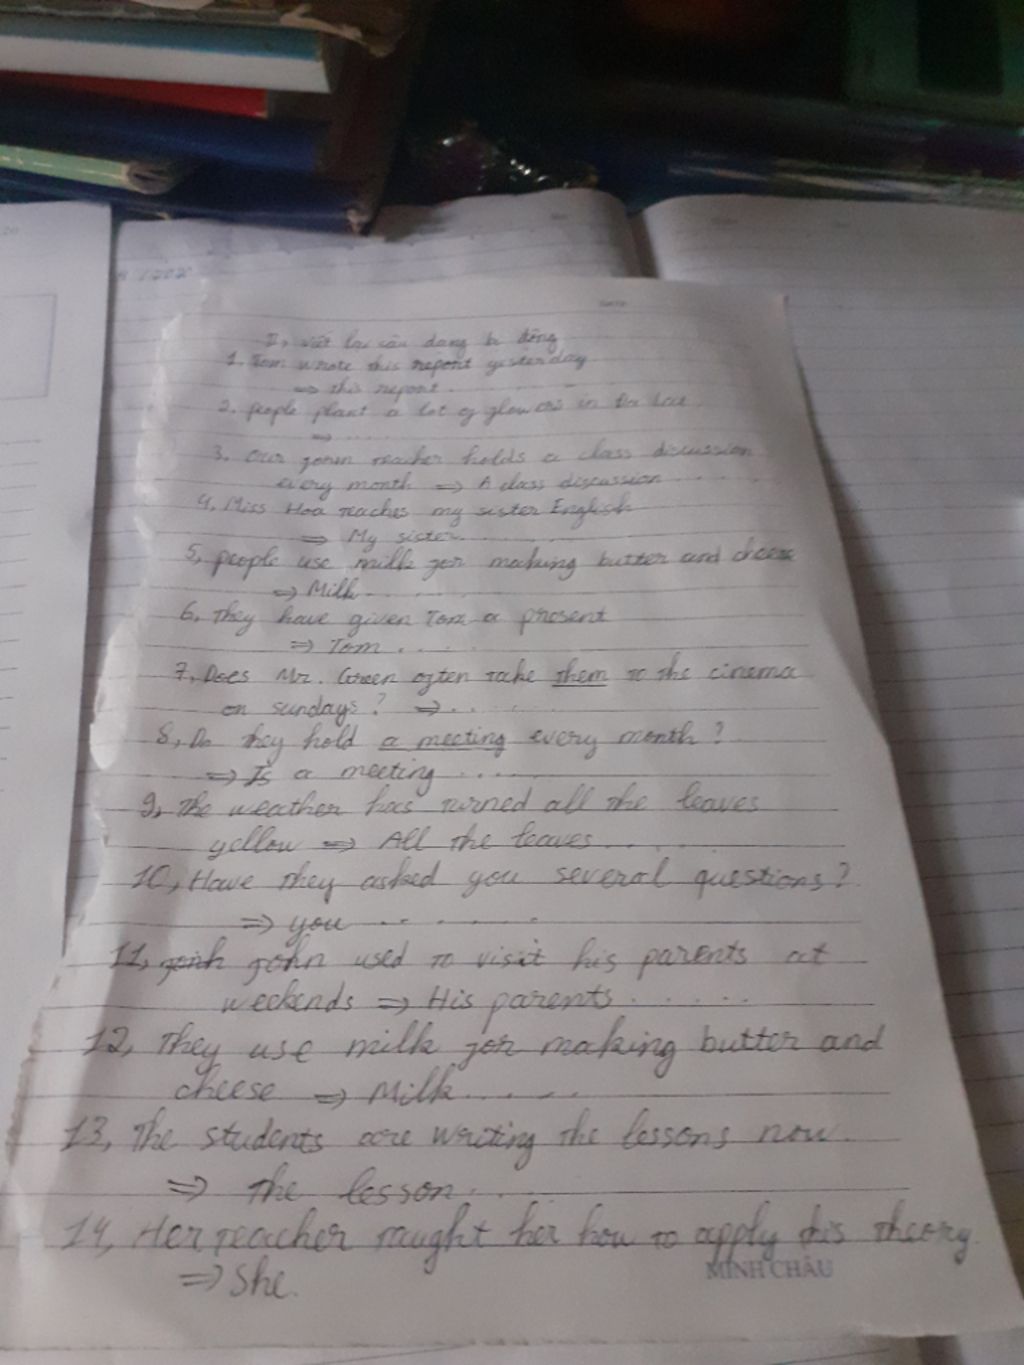 II, viết lại câu dạng bị động
1. Tom wrote this report yesterday
=> this report.
2. people plant a lot of flowers in Da Lat
=> ......
3. Our form teacher holds a class discussion
every month => A class discussion ......
4, Miss Hoa teaches my sister English
=> My sister.......
5, people use milk for making butter and cheese
=> Milk.......
6, They have given Tom a present
=> Tom .....
7, Does Mr. Green often take them to the cinema
on sundays? => ......
8, Do they hold a meeting every month?
=> Is a meeting ......
9, The weather has turned all the leaves
yellow => All the leaves.......
10, Have they asked you several questions?
=> you ......
11, john used to visit his parents at
weekends => His parents ......
12, They use milk for making butter and
cheese => Milk.......
13, The students are writing the lessons now.
=> the lesson.....
14, Her teacher taught her how to apply this theory.
MINH CHÂU
=> She.